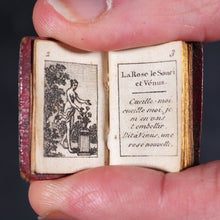 2
3
La Rose le Souci
et Vénus.
Cueille-moi
cueille moi, je
m'en vais
t'embellir
Dit à Vénus, une
rose nouvelle